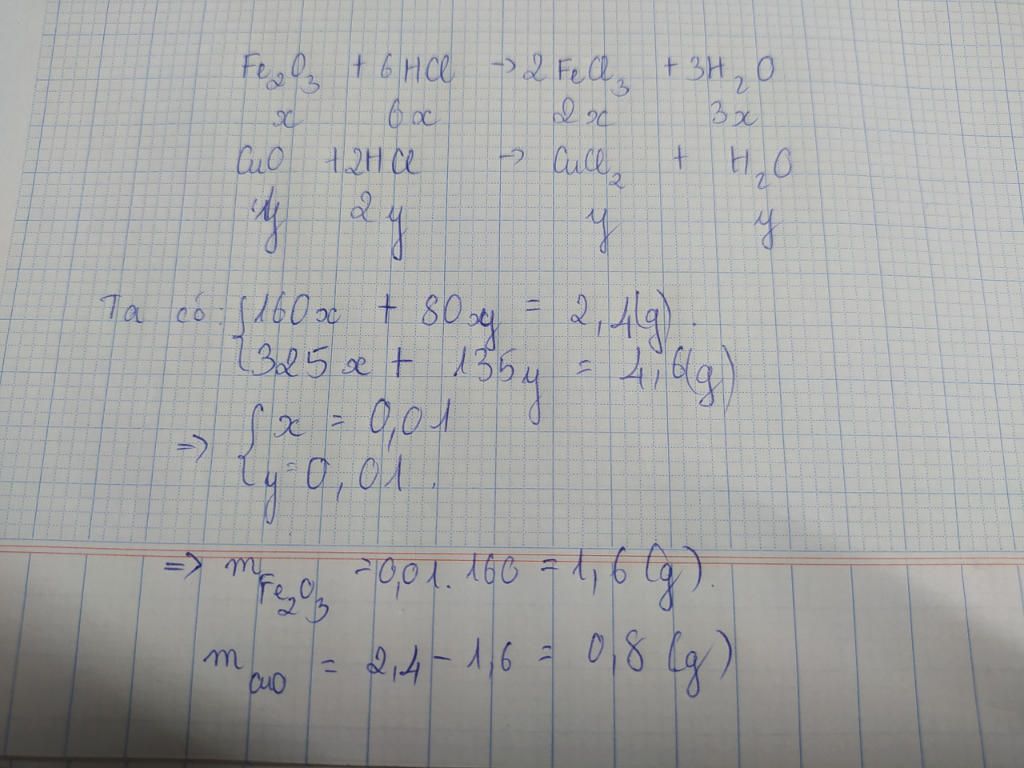 Fe₂O₃ + 6HCl → 2FeCl₃ + 3H₂O
x 6x 2x 3x
CuO + 2HCl → CuCl₂ + H₂O
y 2y y y
Ta có: { 160x + 80y = 2,4(g).
{ 325x + 135y = 4,6(g)
=> { x = 0,01
{ y = 0,01.
=> m Fe₂O₃ = 0,01.160 = 1,6(g).
m CuO = 2,4 - 1,6 = 0,8 (g)